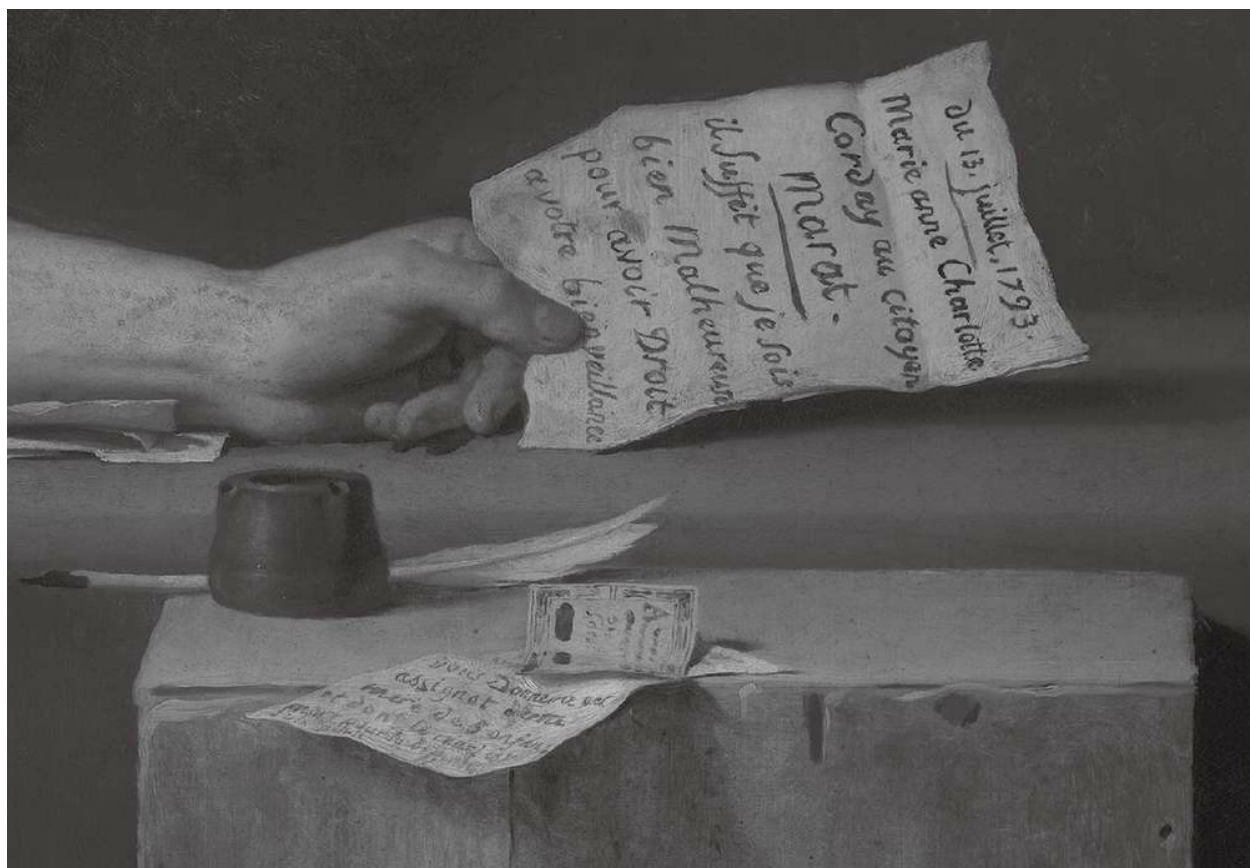 du 13. juillet, 1793.
Marie anne Charlotte
Corday au citoyen
Marat.
il Suffit que je Sois
bien Malheureuse
pour avoir Droit
a votre bienveillance
vous Donnerés cet
assignat à cette
mere de 5 enfans
et dont le mari